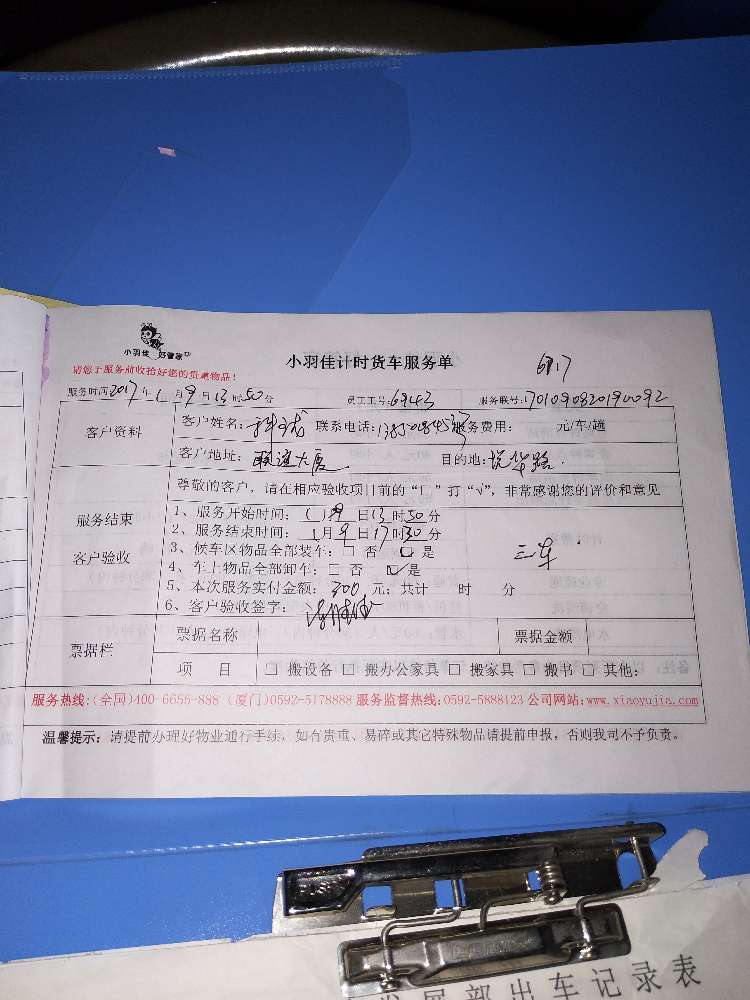 小羽佳 好管家
小羽佳计时货车服务单
请您于服务前收拾好您的贵重物品！
服务时间2017年1月9日13时50分 员工工号:6943 服务联号:1701090820190092
客户资料 客户姓名: 联系电话: 服务费用: 元/车/趟
客户地址: 联谊大厦 目的地:悦华路.
尊敬的客户，请在相应验收项目前的“□”打“√”，非常感谢您的评价和意见
服务结束
客户验收
1、服务开始时间：1月9日13时50分
2、服务结束时间：1月9日17时30分
3、候车区物品全部装车：□ 否 □ 是
三车
4、车上物品全部卸车：□ 否 ☑是
5、本次服务实付金额：300元；共计 时 分
6、客户验收签字：
票据栏 票据名称 票据金额
项 目 □ 搬设备 □ 搬办公家具 □ 搬家具 □ 搬书 □ 其他:
服务热线:(全国)400-6655-888 (厦门)0592-5178888 服务监督热线:0592-5888123 公司网站:www.xiaoyujia.com
温馨提示：请提前办理好物业通行手续，如有贵重、易碎或其它特殊物品请提前申报，否则我司不予负责。
发展部出车记录表